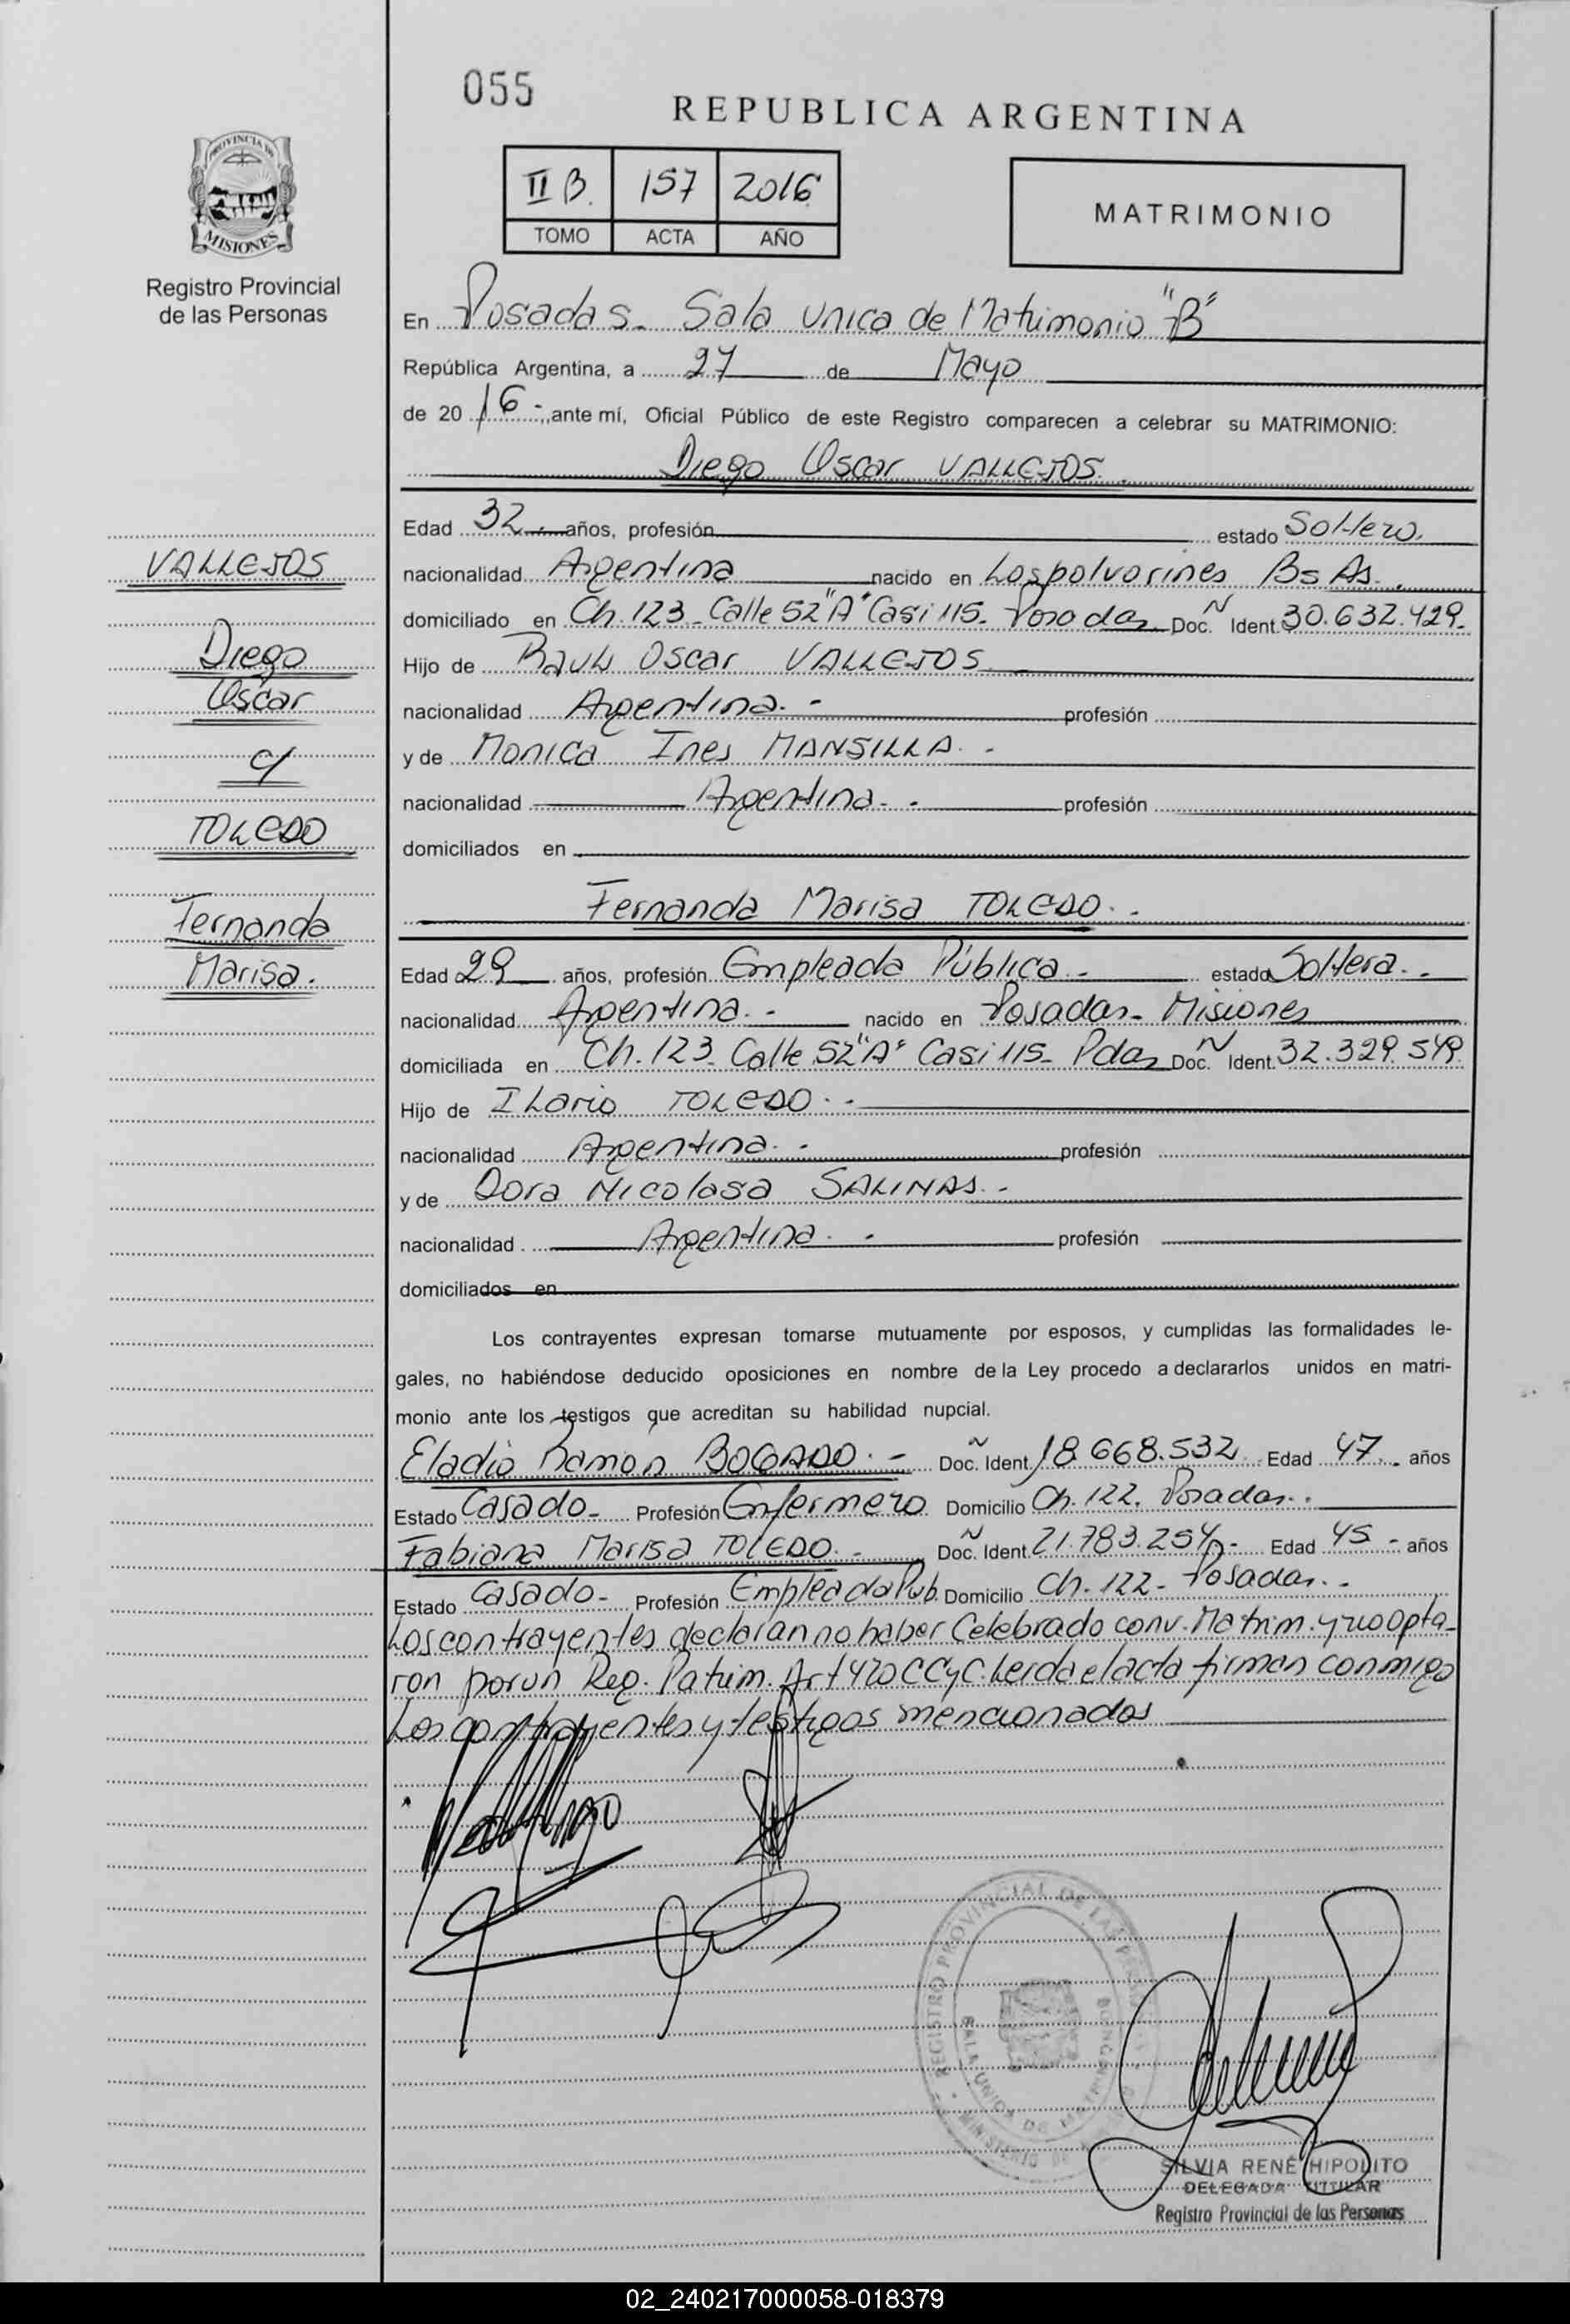 055
REPUBLICA ARGENTINA
PROVINCIA DE
MISIONES
Registro Provincial
de las Personas
II B. 157 2016
TOMO ACTA AÑO
MATRIMONIO
En Posadas. Sala Unica de Matrimonio "B"
República Argentina, a 27 de Mayo
de 2016.-, ante mí, Oficial Público de este Registro comparecen a celebrar su MATRIMONIO:
Diego Oscar VALLEJOS.
Edad 32.- años, profesión estado Soltero.
VALLEJOS
nacionalidad Argentina nacido en Los polvorines Bs As.
domiciliado en Ch. 123 - Calle 52 "A" Casi 115 - Posadas Doc. Ident. 30.632.429.
Diego
Hijo de Raul Oscar VALLEJOS
Oscar
nacionalidad Argentina. - profesión
c/
y de Monica Ines MANSILLA. -
nacionalidad Argentina. - profesión
TOLEDO
domiciliados en
Fernanda Marisa TOLEDO. -
Fernanda
Marisa.
Edad 29 años, profesión Empleada Pública. - estado Soltera. -
nacionalidad Argentina. - nacido en Posadas - Misiones
domiciliada en Ch. 123 - Calle 52 "A" Casi 115 - Pdas Doc. Ident. 32.329.549.
Hijo de Ilario TOLEDO. -
nacionalidad Argentina. - profesión
y de Dora Nicolasa SALINAS. -
nacionalidad Argentina. - profesión
domiciliados en
Los contrayentes expresan tomarse mutuamente por esposos, y cumplidas las formalidades le-
gales, no habiéndose deducido oposiciones en nombre de la Ley procedo a declararlos unidos en matri-
monio ante los testigos que acreditan su habilidad nupcial.
Eladio Ramon BOGADO. - Doc. Ident. 18.668.532. Edad 47. años
Estado Casado - Profesión Enfermero Domicilio Ch. 122. Posadas. -
Fabiana Marisa TOLEDO. - Doc. Ident. 21.783.254 - Edad 45 - años
Estado Casado - Profesión Empleada Pub. Domicilio Ch. 122 - Posadas. -
Los contrayentes declaran no haber Celebrado conv. Matrim. y no opta-
ron por un Reg. Patrim. Art 420 CCyC. Leida el acta firman conmigo
Los contrayentes y testigos mencionados
REGISTRO PROVINCIAL DE LAS
SALA UNICA DE
MINISTERIO DE
SILVIA RENÉ HIPOLITO
DELEGADA TITULAR
Registro Provincial de las Personas
02_240217000058-018379